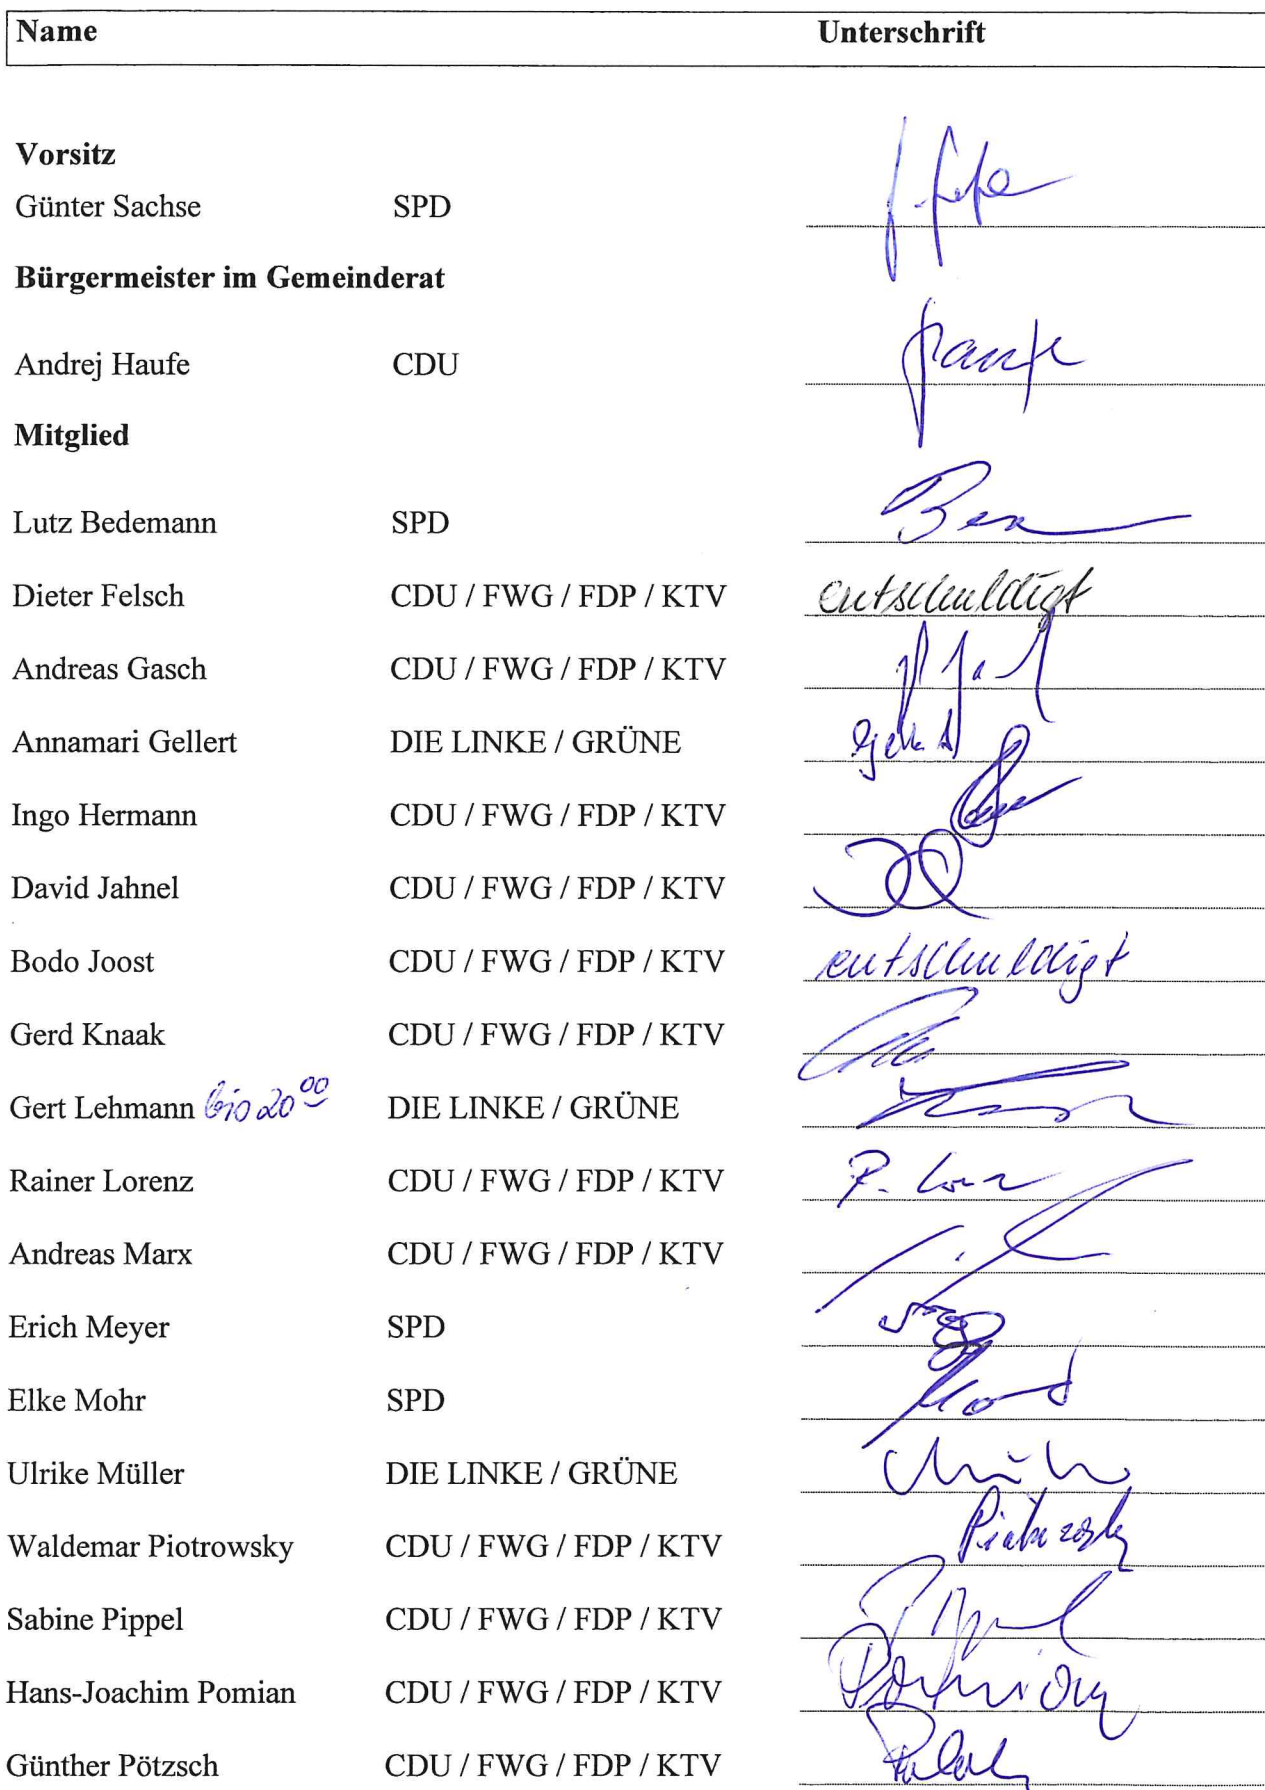 Name Unterschrift
Vorsitz
Günter Sachse SPD
Bürgermeister im Gemeinderat
Andrej Haufe CDU
Mitglied
Lutz Bedemann SPD
Dieter Felsch CDU / FWG / FDP / KTV entschuldigt
Andreas Gasch CDU / FWG / FDP / KTV
Annamari Gellert DIE LINKE / GRÜNE
Ingo Hermann CDU / FWG / FDP / KTV
David Jahnel CDU / FWG / FDP / KTV
Bodo Joost CDU / FWG / FDP / KTV entschuldigt
Gerd Knaak CDU / FWG / FDP / KTV
Gert Lehmann bis 20 00 DIE LINKE / GRÜNE
Rainer Lorenz CDU / FWG / FDP / KTV
Andreas Marx CDU / FWG / FDP / KTV
Erich Meyer SPD
Elke Mohr SPD
Ulrike Müller DIE LINKE / GRÜNE
Waldemar Piotrowsky CDU / FWG / FDP / KTV
Sabine Pippel CDU / FWG / FDP / KTV
Hans-Joachim Pomian CDU / FWG / FDP / KTV
Günther Pötzsch CDU / FWG / FDP / KTV